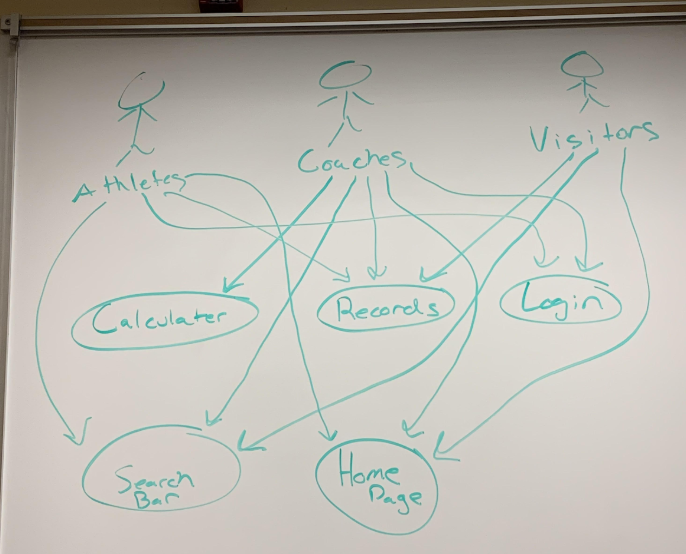 Athletes
Coaches
Visitors
Calculater
Records
Login
Search
Bar
Home
Page